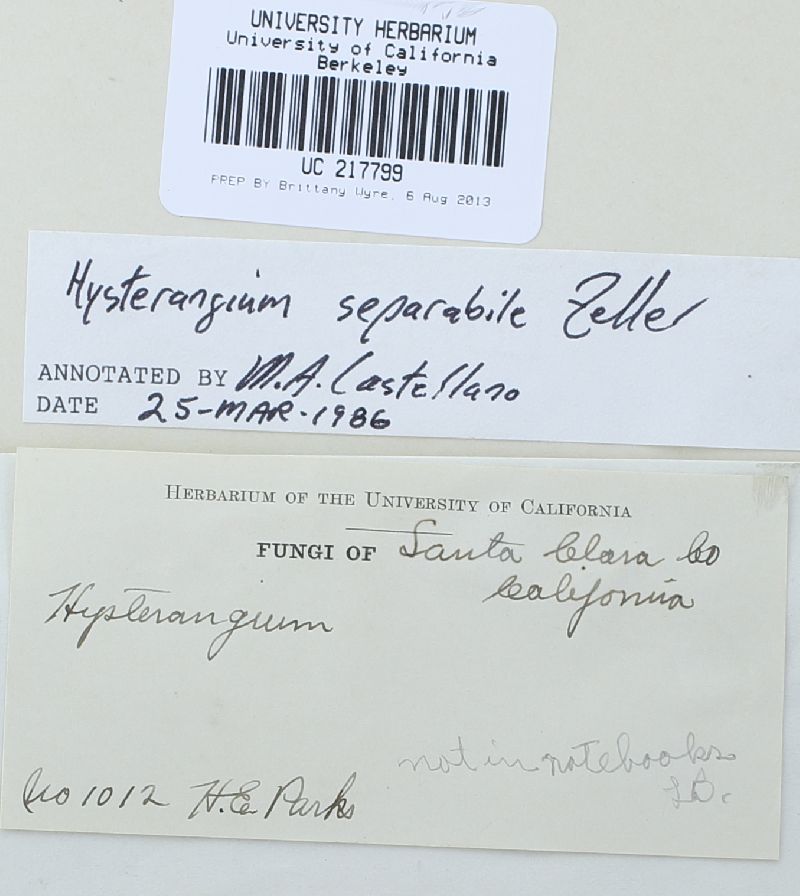 UNIVERSITY HERBARIUM
University of California
Berkeley
UC 217799
PREP BY Brittany Wyre, 6 Aug 2013
Hysterangium separabile Zeller
ANNOTATED BY M.A. Castellano
DATE 25-MAR-1986
HERBARIUM OF THE UNIVERSITY OF CALIFORNIA
FUNGI OF Santa Clara Co
California
Hysterangium
not in notebooks
No 1012 H.E. Parks